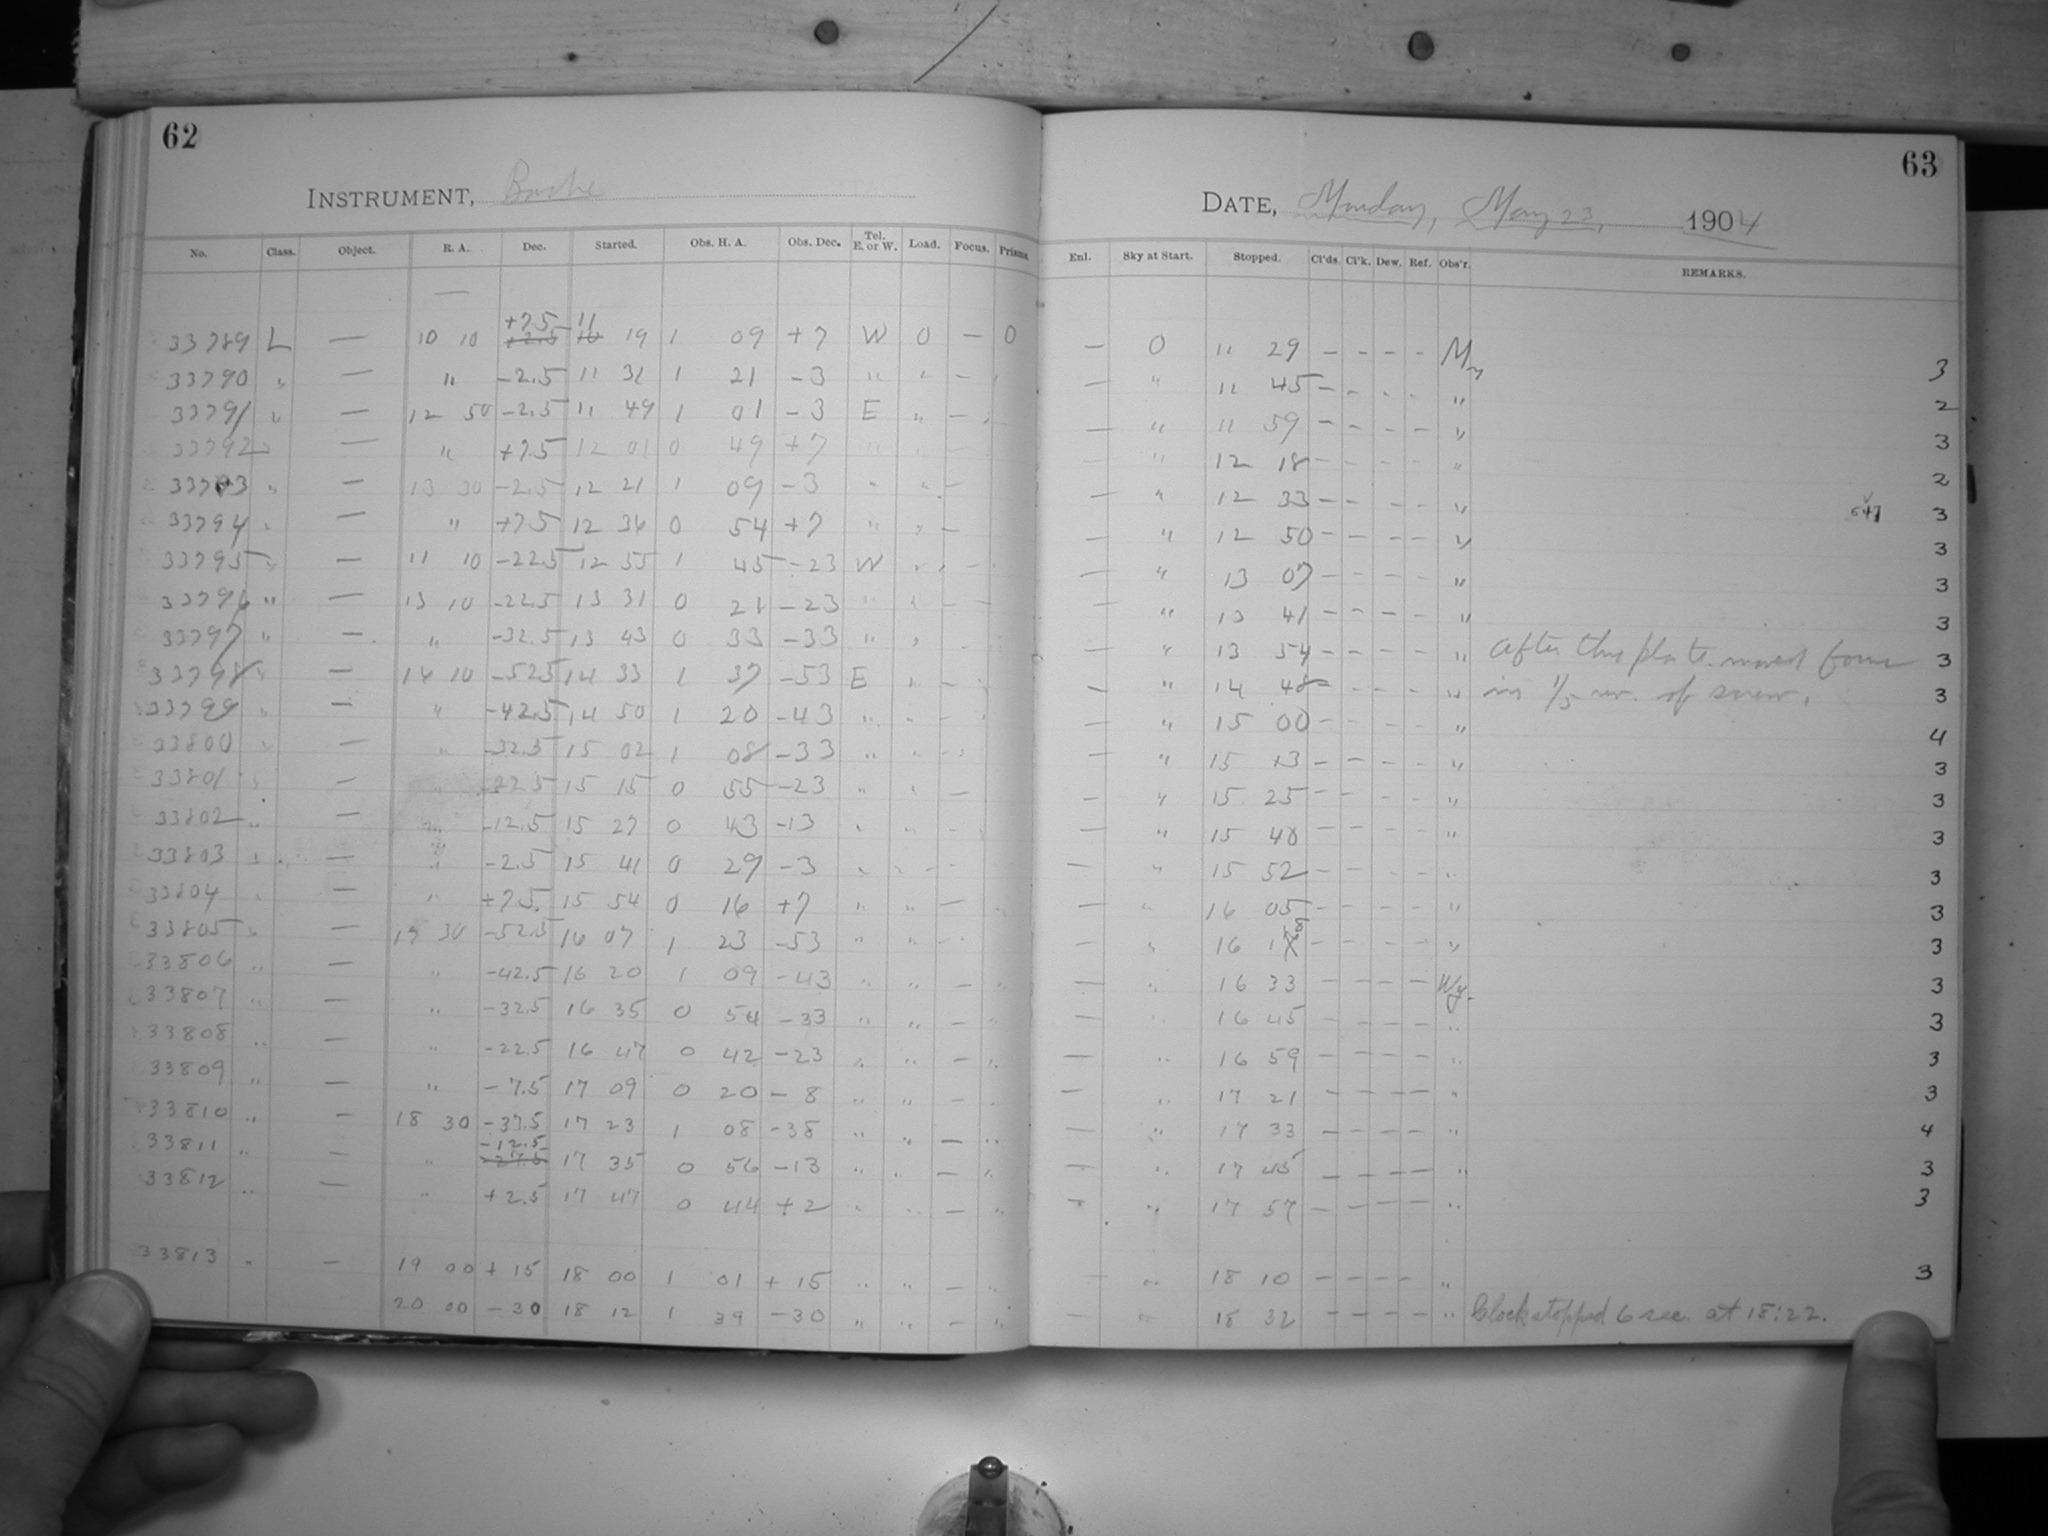 62
INSTRUMENT, Bache
No. Class. Object. R. A. Dec. Started. Obs. H. A. Obs. Dec. Tel. E. or W. Load. Focus. Prisms.
—
+7.5 11
33789 L — 10 10 +2.5 10 19 1 09 +7 W 0 — 0
33790 " — " -2.5 11 31 1 21 -3 " " —
33791 " — 12 50 -2.5 11 49 1 01 -3 E " —
33792 " — " +7.5 12 01 0 49 +7
33793 " — 13 30 -2.5 12 21 1 09 -3 " " —
33794 " — " +7.5 12 36 0 54 +7 " " —
33795 " — 11 10 -22.5 12 55 1 45 -23 W " —
33796 " — 13 10 -22.5 13 31 0 21 -23 " " — —
33797 " — " -32.5 13 43 0 33 -33 " "
33798 " — 14 10 -52.5 14 33 1 37 -53 E " —
33799 " — " -42.5 14 50 1 20 -43 " " —
33800 " — " -32.5 15 02 1 08 -33 " " —
33801 " — " -22.5 15 15 0 55 -23 " " —
33802 " — " -12.5 15 27 0 43 -13 " " —
33803 " — " -2.5 15 41 0 29 -3 " " —
33804 " — " +7.5 15 54 0 16 +7 " " —
33805 " — 17 30 -52.5 16 07 1 23 -53 " " —
33806 " — " -42.5 16 20 1 09 -43 " " — "
33807 " — " -32.5 16 35 0 54 -33 " " — "
33808 " — " -22.5 16 47 0 42 -23 " " — "
33809 " — " -7.5 17 09 0 20 -8 " " — "
33810 " — 18 30 -37.5 17 23 1 08 -38 " " — "
-12.5
33811 " — " -27.5 17 35 0 56 -13 " " — "
33812 " — " +2.5 17 47 0 44 +2 " " — "
33813 " — 19 00 +15 18 00 1 01 +15 " " — "
20 00 -30 18 12 1 39 -30 " " — "
63
DATE, Monday, May 23, 1904
Enl. Sky at Start. Stopped. Cl'ds. Cl'k. Dew. Ref. Obs'r. REMARKS.
— 0 11 29 — — — — 3
— " 11 45 — — — — " 2
— " 11 59 — — — — " 3
— " 12 18 — — — — " 2
— " 12 33 — — — — " 3
— " 12 50 — — — — " 3
— " 13 07 — — — — " 3
— " 13 41 — — — — " 3
— " 13 54 — — — — " After this plate moved focus 3
— " 14 48 — — — — " in 1/5 rev. of screw. 3
— " 15 00 — — — — " 4
— " 15 13 — — — — " 3
— " 15 25 — — — — " 3
— " 15 40 — — — — " 3
— " 15 52 — — — — " 3
— " 16 05 — — — — " 3
— " 16 18 — — — — " 3
— " 16 33 — — — — Wy. 3
— " 16 45 — — — — " 3
— " 16 59 — — — — " 3
— " 17 21 — — — — " 3
— " 17 33 — — — — " 4
— " 17 45 — — — — " 3
— " 17 57 — — — — " 3
— " 18 10 — — — — " 3
— " 18 32 — — — — " Clock stopped 6 sec. at 18:22.